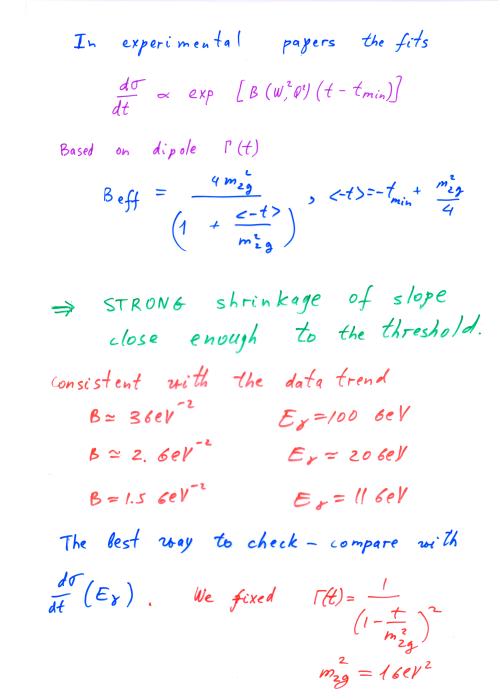 In experimental papers the fits
dσ/dt ∝ exp [B(W²,Q²)(t - tmin)]
Based on dipole Γ(t)
Beff = 4m²2g / (1 + <-t>/m²2g) , <-t> = -tmin + m²2g/4
⇒ STRONG shrinkage of slope
close enough to the threshold.
consistent with the data trend
B ≃ 3GeV⁻² Eγ = 100 GeV
B ≃ 2. GeV⁻² Eγ ≈ 20 GeV
B = 1.5 GeV⁻² Eγ = 11 GeV
The best way to check - compare with
dσ/dt (Eγ). We fixed Γ(t) = 1/(1 - t/m²2g)²
m²2g = 1 GeV²